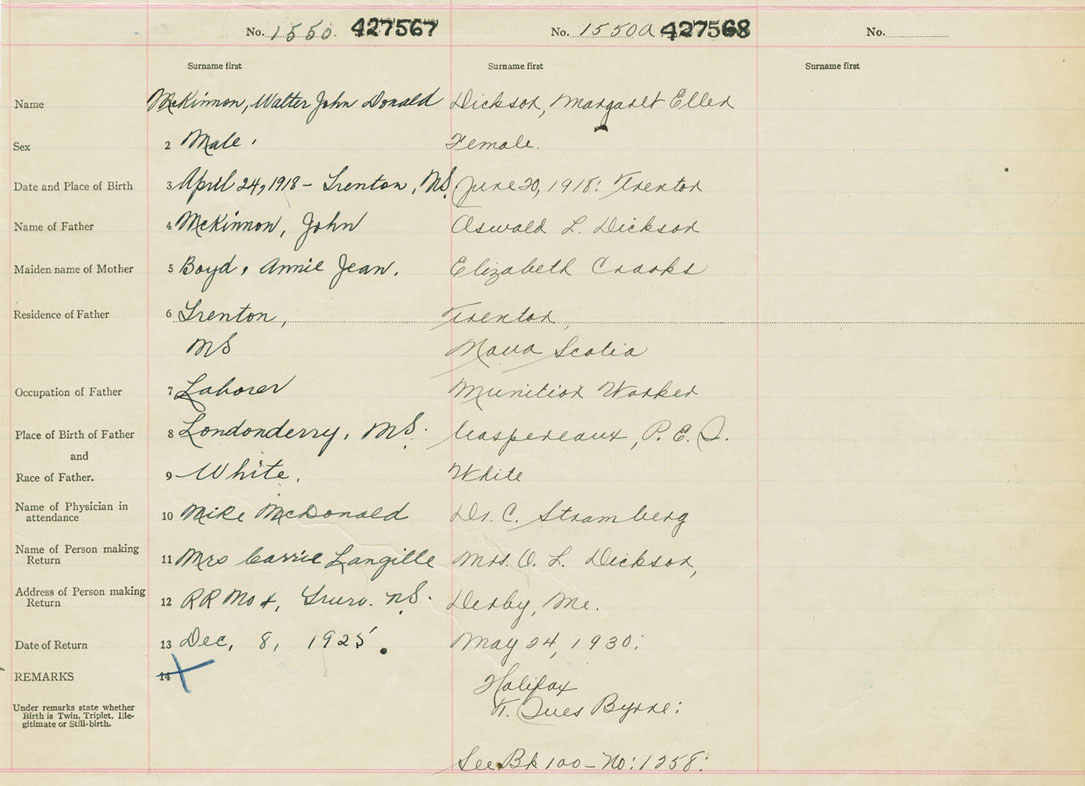 No. 1550. 427567 No. 1550a 427568 No.
Surname first Surname first Surname first
Name McKinnon, Walter John Donald Dickson, Margaret Ellen
Sex 2 Male. Female.
Date and Place of Birth 3 April 24, 1918 - Trenton, NS. June 20, 1918: Trenton
Name of Father 4 McKinnon, John Oswald L. Dickson
Maiden name of Mother 5 Boyd, Annie Jean. Elizabeth Crooks
Residence of Father 6 Trenton, Trenton,
NS Nova Scotia
Occupation of Father 7 Laborer Munition Worker
Place of Birth of Father 8 Londonderry, NS. Gaspereaux, P.E.I.
and
Race of Father. 9 White. White
Name of Physician in
attendance 10 Mike McDonald Dr. C. Stramberg
Name of Person making
Return 11 Mrs Carrie Langille Mrs. O. L. Dickson,
Address of Person making
Return 12 RR No 4, Truro. NS. Derby, Me.
Date of Return 13 Dec, 8, 1925. May 24, 1930:
REMARKS 14 Halifax
Under remarks state whether
Birth is Twin, Triplet, Ille-
gitimate or Still-birth.
Byrne:
See Bk 100 - No: 1258: